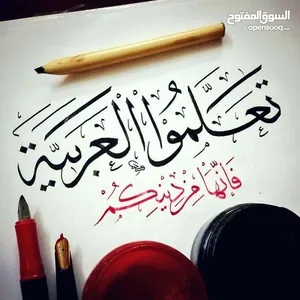 السوق المفتوح
opensooq.com
تعلَّموا العَرَبيَّة
فَإنَّها مِنْ دِينِكُمْ